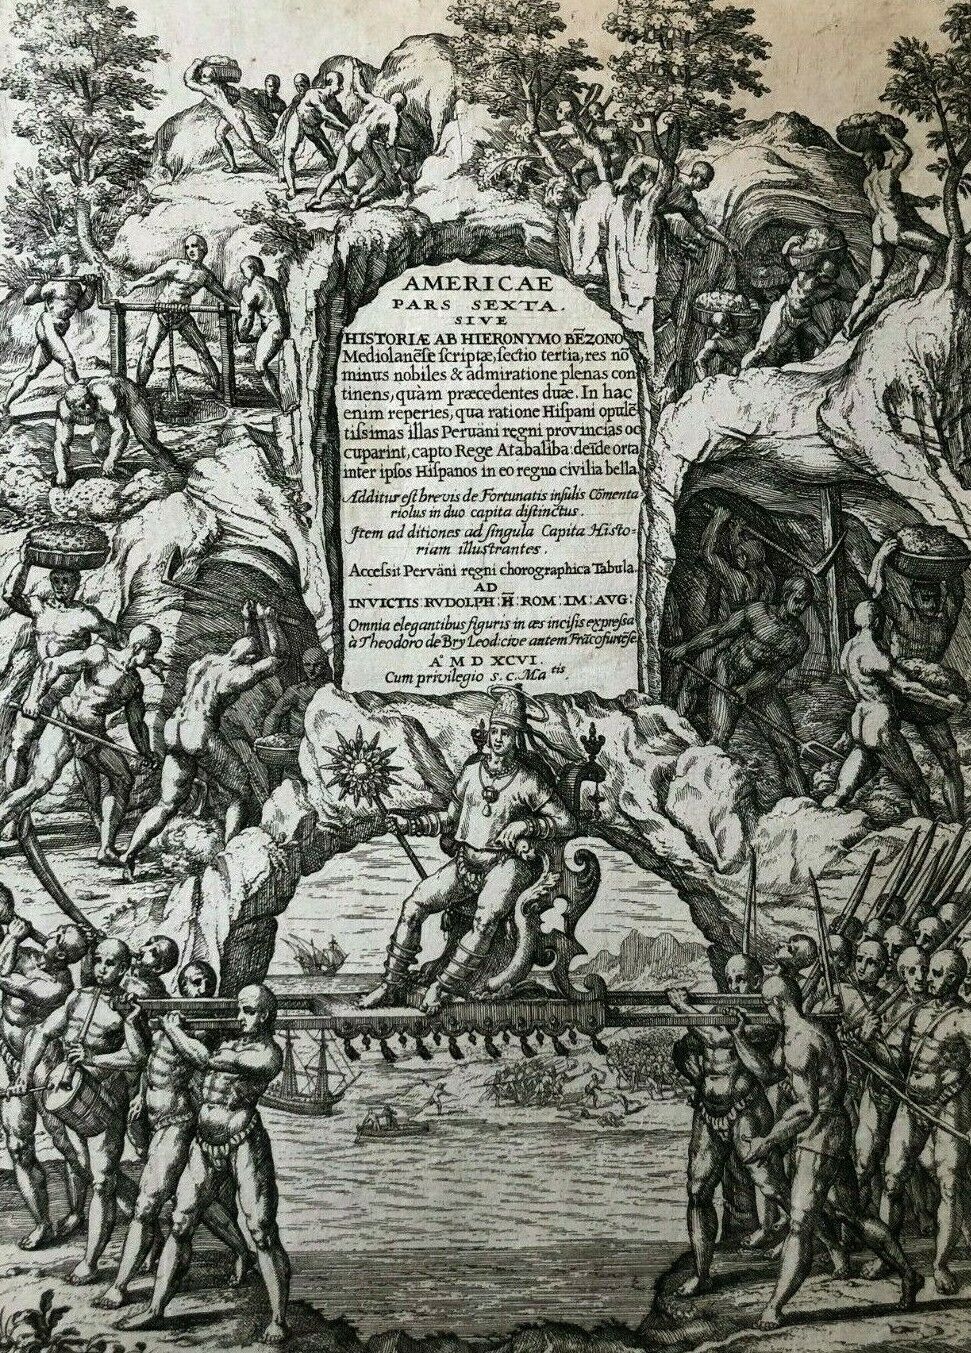 AMERICAE
PARS SEXTA.
SIVE
HISTORIÆ AB HIERONYMO BẼZONO
Mediolanẽse scriptæ, sectio tertia, res nõ
minus nobiles & admiratione plenas con
tinens, quàm præcedentes duæ. In hac
enim reperies, qua ratione Hispani opulẽ
tissimas illas Peruãni regni provincias oc
cuparint, capto Rege Atabaliba: deĩde orta
inter ipsos Hispanos in eo regno civilia bella
Additur est brevis de Fortunatis insulis Cõmenta
riolus in duo capita distinctus.
Item additiones ad singula Capita Histo-
riam illustrantes.
Accessit Pervãni regni chorographica Tabula.
AD
INVICTIS RVDOLPH: II: ROM: IM: AVG:
Omnia elegantibus figuris in æs incisis expressa
à Theodoro de Bry Leod: cive autem Frãcofurẽse
Aº M D XCVI.
Cum privilegio S. C. Matis.